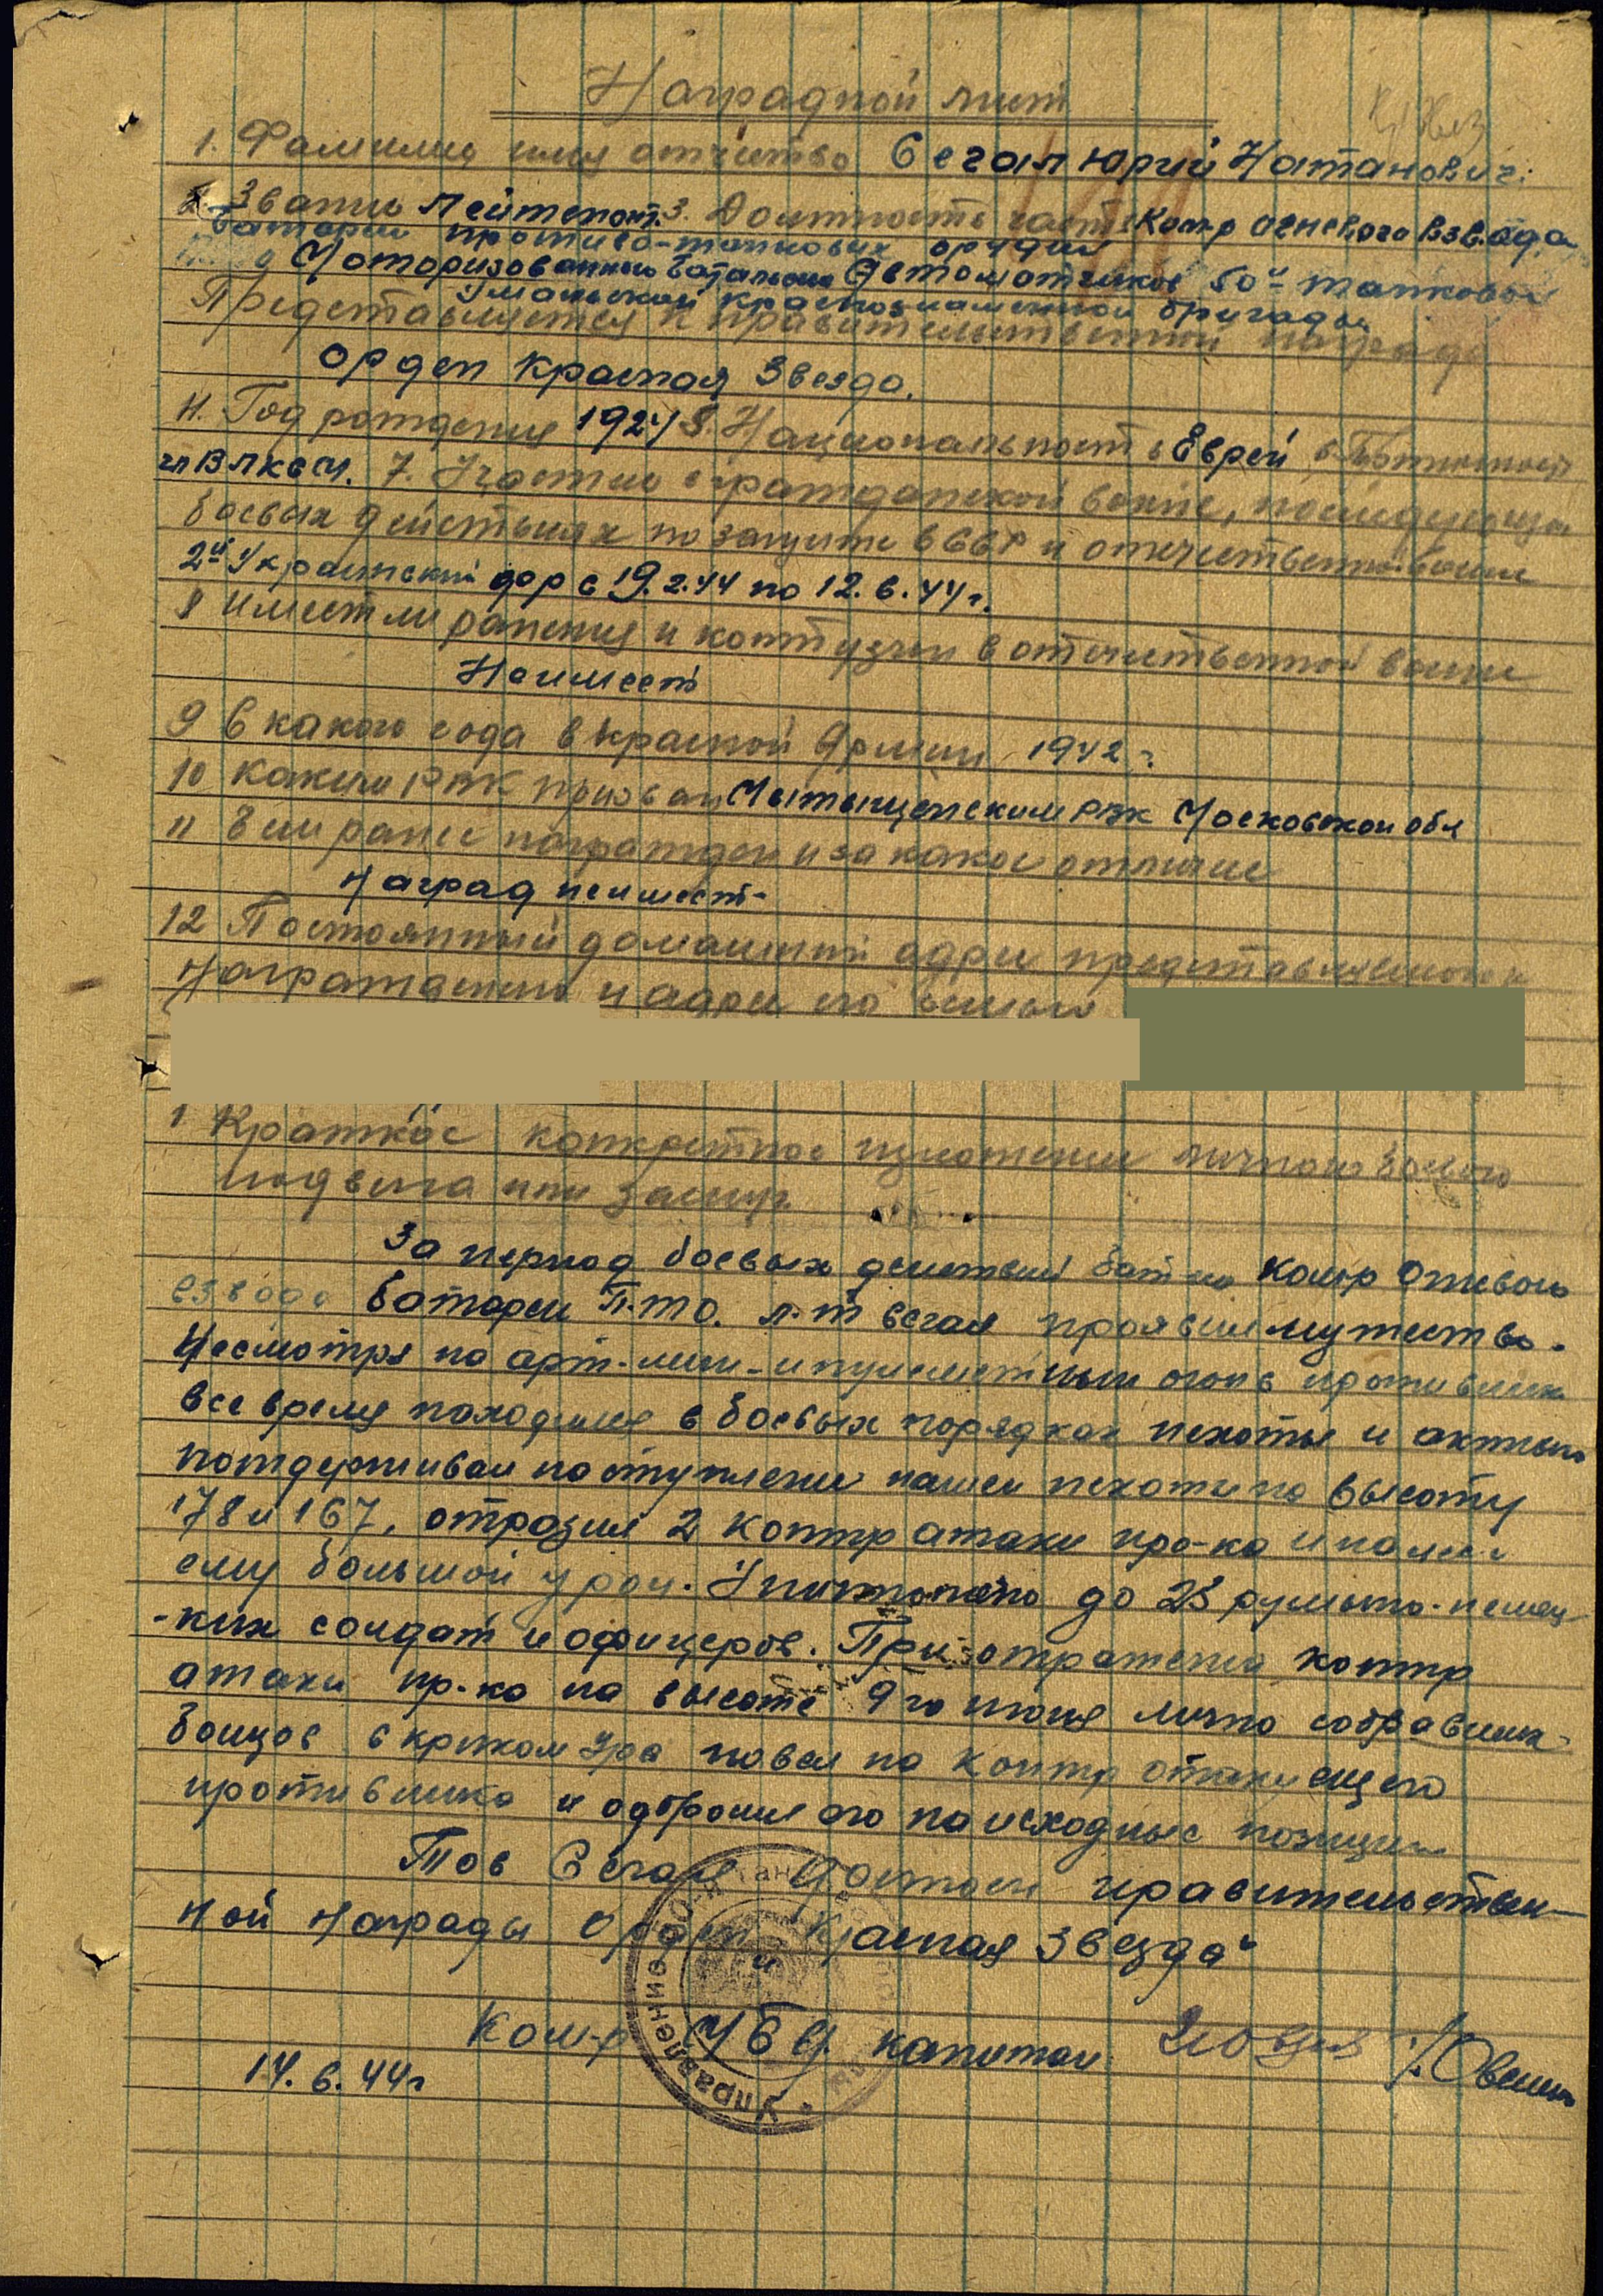 Наградной лист
1. Фамилия имя отчество Сегал Юрий Натанович.
2. Звание Лейтенант. 3. Должность часть Ком-р огневого взвода
батареи противо-танковых орудий
Моторизованного батальона Автоматчиков 50й танковой
Уманьской краснознаменной бригады
Представляется к правительственной награде
орден Красная Звезда.
4. Год рождения 1924 5. Национальность Еврей 6. Партийность
чл ВЛКСМ. 7. Участие в гражданской войне, последующих
боевых действиях по защите СССР и отечественной войне
2й Украинский фр с 19.2.44 по 12.6.44 г.
8 Имеет ли ранения и контузии в отечественной войне
Не имеет
9 С какого года в Красной Армии 1942 г.
10 Каким РВК призван Мытыщенским РВК Московской обл
11 Чем ранее награжден и за какое отличие
Наград не имеет-
12 Постоянный домашний адрес представляемого к
награждению и адрес его семьи
1 Краткое конкретное изложение личного боевого
подвига или заслуг.
За период боевых действий бат-на Ком-р Огневого
взвода батареи П.Т.О. л-т Сегал проявил мужество.
Несмотря на арт-мин-и пулеметный огонь противника
все время находился в боевых порядках пехоты и активно
поддерживал наступление нашей пехоты на высоту
178 и 167, отразил 2 контр атаки про-ка и нанес
ему большой урон. Уничтожено до 25 румыно-немец
-ких солдат и офицеров. При отражении контр
атаки пр-ка на высоте 9го июня лично собрав
бойцов с криком Ура повел на контр атакующего
противника и отбросил его на исходные позиции
Тов Сегал достоин правительствен-
ной награды Орден „Красная Звезда“
Ком-р МБА капитан
14.6.44г
Управление